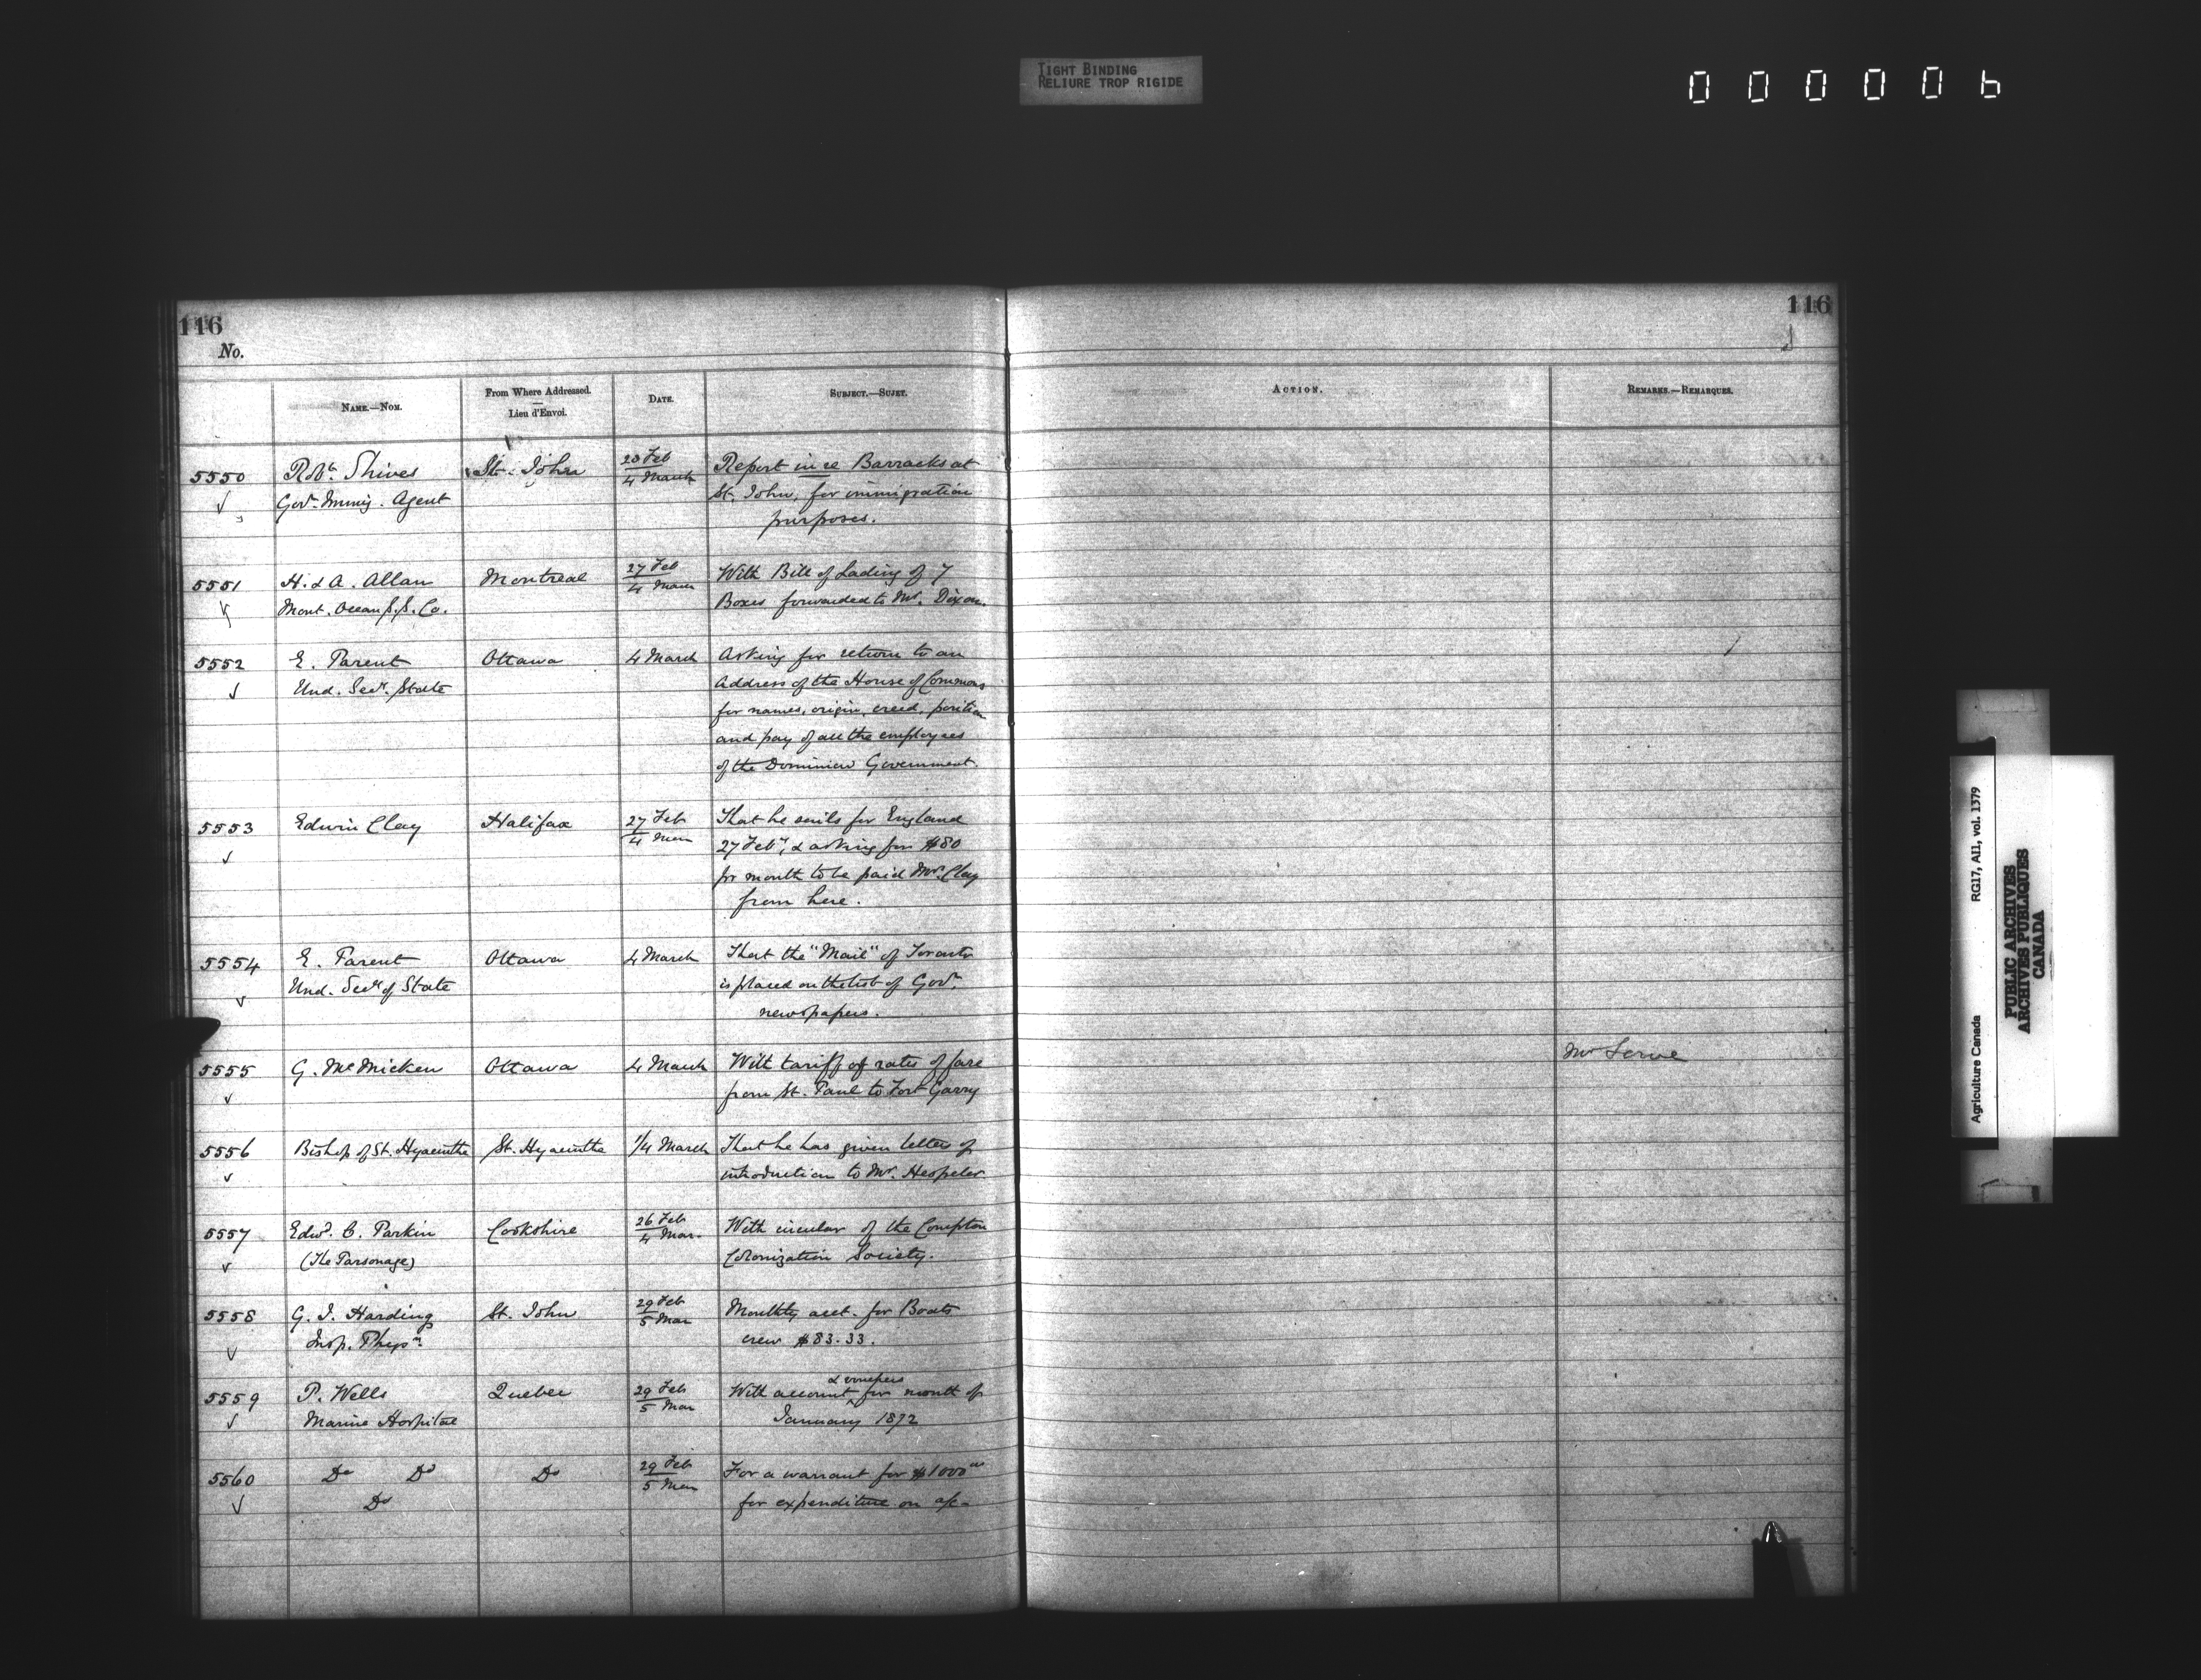 TIGHT BINDING
RELIURE TROP RIGIDE
000006
116
116
No.
NAME.—NOM.
From Where Addressed.
—
Lieu d'Envoi.
DATE.
SUBJECT.—SUJET.
ACTION.
REMARKS.—REMARQUES.
5550 Robt. Shives St. John 28 Feb Report in re Barracks at
Govt. Immig. Agent 4 March St. John, for immigration
purposes.
5551 H. & A. Allan Montreal 27 Feb With Bill of Lading of 7
Mont. Ocean S.S. Co. 4 March Boxes forwarded to Mr. Dixon.
5552 E. Parent Ottawa 4 March Asking for return to an
Und. Secy. State Address of the House of Commons
for names, origin, creed, position
and pay of all the employees
of the Dominion Government.
5553 Edwin Clay Halifax 27 Feb That he sails for England
4 Mar 27 Feby, & asking for $80
pr month to be paid Mrs. Clay
from here.
5554 E. Parent Ottawa 4 March That the "Mail" of Toronto
Und. Secy of State is placed on the list of Govt.
newspapers.
5555 G. McMicken Ottawa 4 March With tariff of rates of fare
from St. Paul to Fort Garry
Mr
5556 Bishop of St. Hyacinthe St. Hyacinthe 1/4 March That he has given letter of
introduction to Mr. Hespeler
5557 Edwd. C. Parkin Cookshire 26 Feb With circular of the Compton
(The Parsonage) 4 Mar. Colonization Society.
5558 G. J. Harding St. John 29 Feb Monthly acct. for Boats
Insp. Physn. 5 Mar crew $83.33.
5559 P. Wells Quebec 29 Feb With account & vouchers for month of
Marine Hospital 5 Mar January 1872
5560 Do Do Do 29 Feb For a warrant for $1000 00
Do 5 Mar for expenditure on a/c-
Agriculture Canada RG17, AII, vol. 1379
PUBLIC ARCHIVES
ARCHIVES PUBLIQUES
CANADA